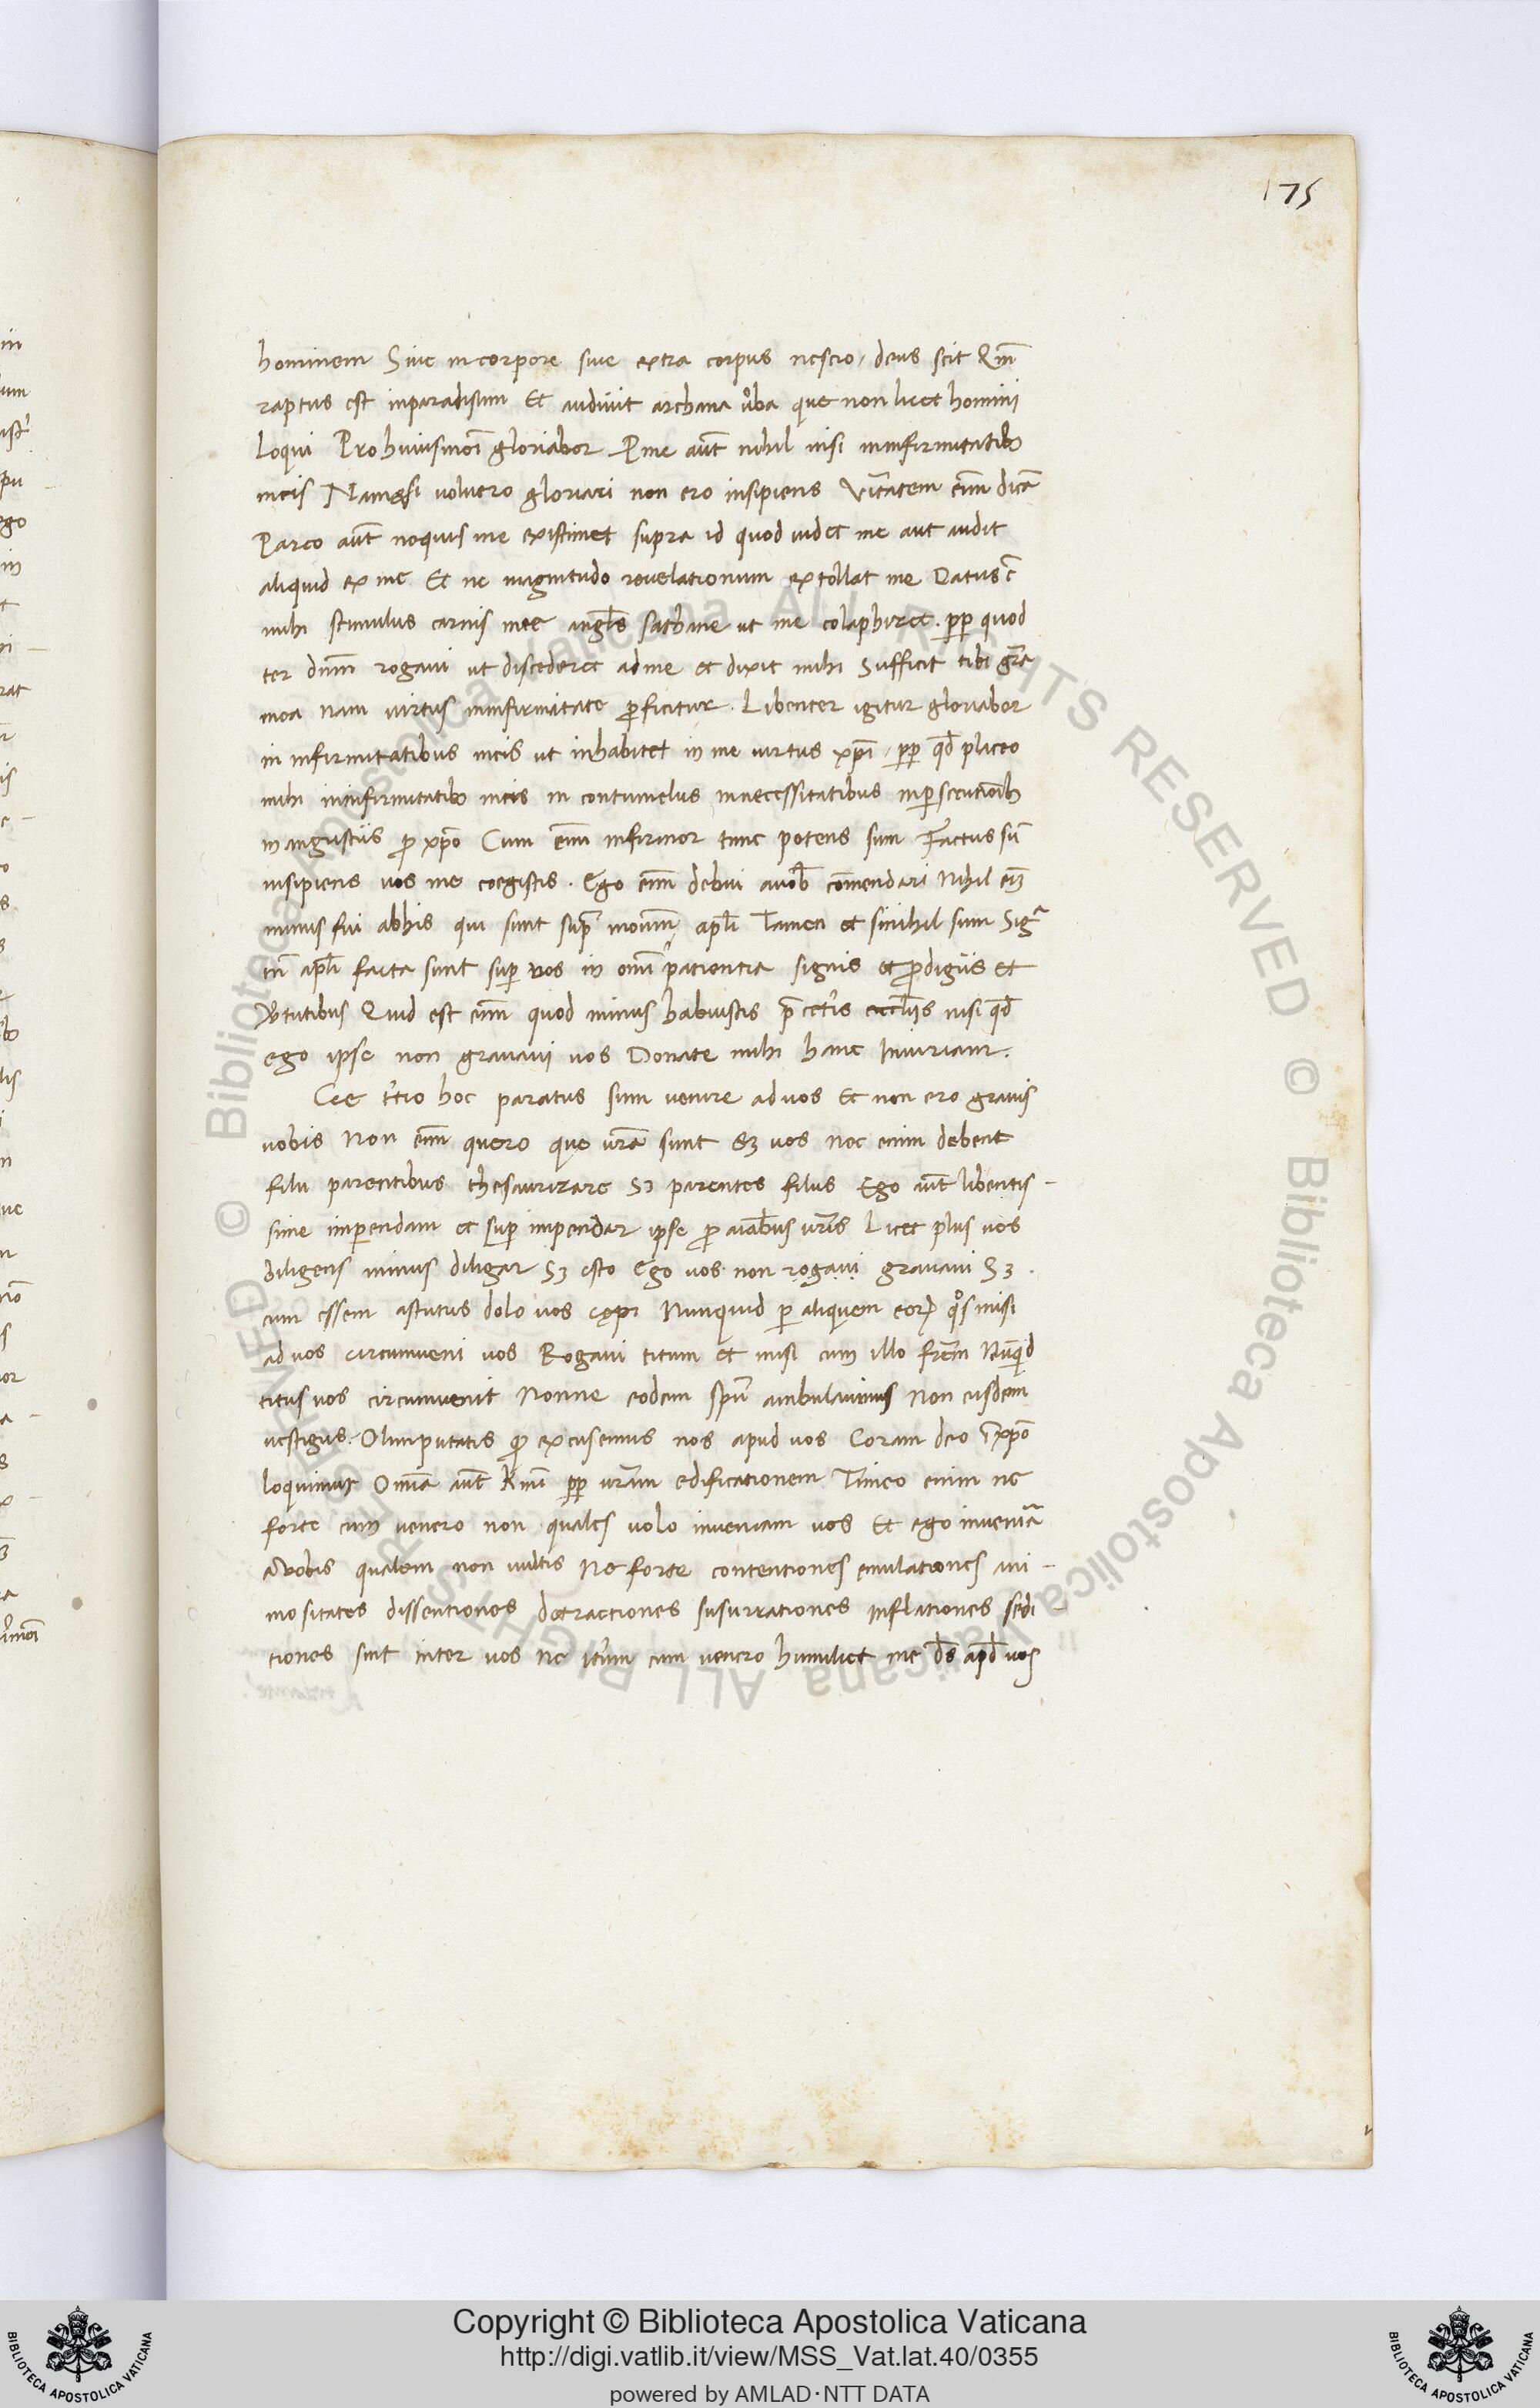 175
hominem Siue in corpore siue extra corpus nescio, deus scit Qm̄
raptus est inparadisum Et audiuit archana ūba que non licet homini
loqui Pro huiusmōi gloriabor P me aūt nihil nisi ininfirmitatib;
meis Nam & si voluero gloriari non ero insipiens Vītatem eīm dicā
Parco aūt nequis me existimet supra id quod uidet me aut audit
aliquid ex me Et ne magnitudo reuelationum extollat me Datus ē
mihi stimulus carnis mee angl̄s sathane ut me colaphizet. pp̄ quod
ter dnm̄ rogaui ut discederet adme et dixit mihi Sufficit tibi gr̄a
mea nam uirtus ininfirmitate ꝑficitur. Libenter igitur gloriabor
in infirmitatibus meis ut inhabitet in me uirtus xp̄i, pp̄ qd̄ placeo
mihi ininfirmitatib; meis in contumelijs innecessitatibus inꝑsecutiōib;
in angustijs ꝓ xp̄o Cum eīm infirmor tunc potens sum Factus sū
insipiens uos me coegistis. Ego eīm debui auob̄ cōmendari Nihil eī
minus fui abhis qui sunt sup̄ modum apl̄i Tamen et sinihil sum Sig͏ᵃ
tn̄ apl̄i facta sunt suꝑ uos in omī patientia signis et ꝓdigijs et
Vītutibus Quid est eīm quod minus habuistis p̄ cet̄is eccl̄ijs nisi qd̄
ego ipse non grauaui uos Donate mihi hanc Iniuriam.
Cce t̄tio hoc paratus sum uenire aduos et non ero grauis
uobis Non eīm quero que ur̄a sunt sꝫ uos nec enim debent
filij parentibus thesaurizare sꝫ parentes filijs Ego aūt libentis-
sime impendam et suꝑ impendar ipse ꝓ aīabus ur̄is Licet plus uos
diligens minus diligar Sꝫ esto Ego uos non rogaui grauaui Sꝫ.
cum essem astutus dolo uos cępi Nunquid ꝑ aliquem eoꝝ qͦs misi
ad uos circumueni uos Rogaui titum et misi cum illo fr̄em Nūqd
titus uos circumuenit Nonne eodem spū ambulauimus Non eisdem
uestigijs. Olimputatis qͩ excusemus nos apud uos Coram deo ī xp̄o
loquimur Omīa aūt Kmī pp̄ ur̄am edificationem Timeo enim ne
forte cum uenero non quales uolo inueniam uos Et ego inueniā
a uobis qualem non uultis Ne forte contentiones emulationes ani-
mositates dissentiones detractiones susurrationes inflationes sedi-
tiones sint inter uos ne it̄um cum uenero humiliet me ds̄ apd̄ uos
Copyright © Biblioteca Apostolica Vaticana
http://digi.vatlib.it/view/MSS_Vat.lat.40/0355
powered by AMLAD·NTT DATA
BIBLIOTECA APOSTOLICA VATICANA
BIBLIOTECA APOSTOLICA VATICANA